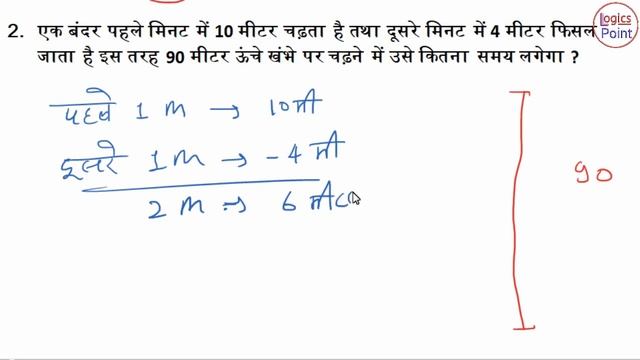 Logics
Point
2. एक बंदर पहले मिनट में 10 मीटर चढ़ता है तथा दूसरे मिनट में 4 मीटर फिसल
जाता है इस तरह 90 मीटर ऊंचे खंभे पर चढ़ने में उसे कितना समय लगेगा ?
पहले 1 m → 10 मी
दूसरे 1 m → -4 मी
2 m → 6 मी
90